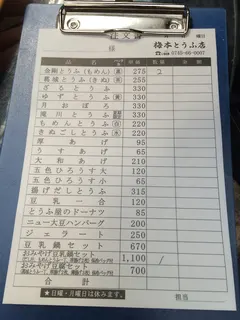 注文書
曜日
梅本とうふ店
様
☎ 0740-66-0007
品 名 価格 数量 金額
金剛とうふ(もめん) 275 2
葛城とうふ(きぬ) 255
ざるとうふ 330
ゆずとうふ 330
月おぼろ 330
滝川とうふ
もめんとうふ 220
きぬごしとうふ 220
厚あげ 95
うすあげ 65
大和あげ 210
五色ひろうす大 120
五色ひろうす小 65
揚げだしとうふ 315
豆乳一合 120
とうふ屋のドーナツ 85
ニュー大豆ハンバーグ 200
ジェラート 250
豆乳鍋セット 670
おみやげ豆鍋セット 1,100 /
おみやげ豆腐セット 700
合計
★日曜・月曜日は休みます。
担当